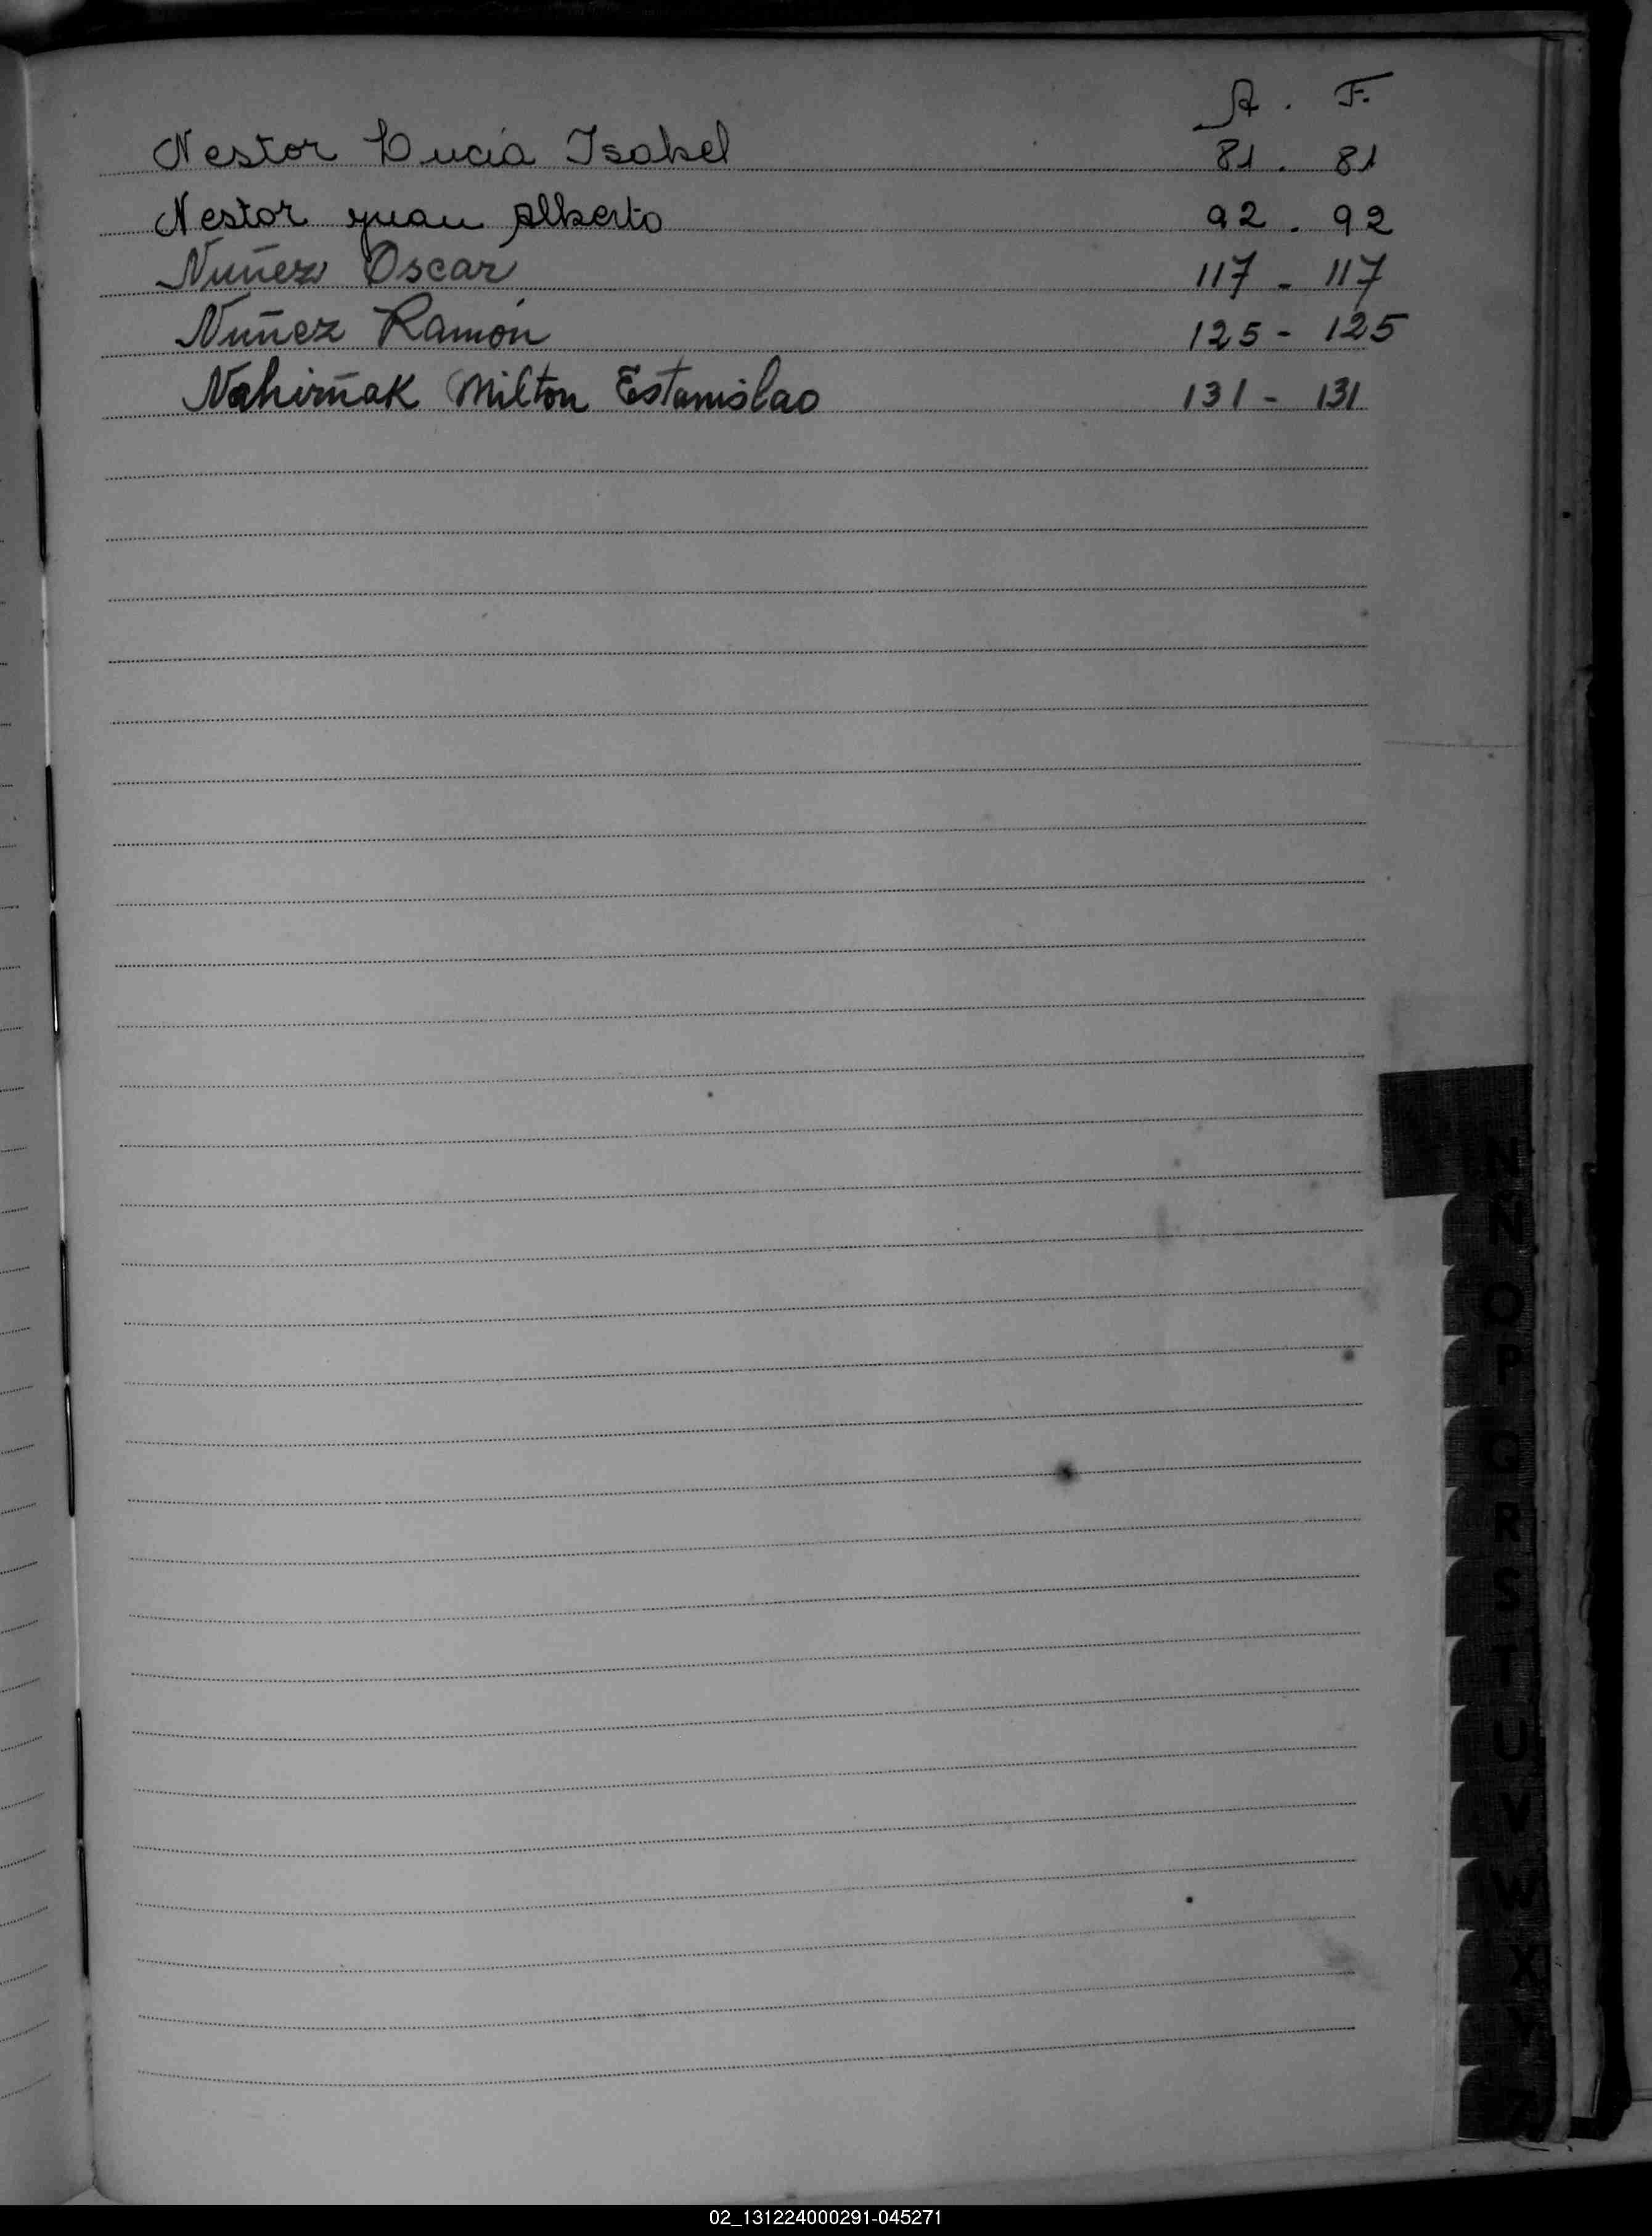 A. F.
Nestor Lucía Isabel 81. 81
Nestor Juan Alberto 92. 92
Nuñez Oscar 117 - 117
Nuñez Ramón 125 - 125
Nahirñak Milton Estanislao 131 - 131
N
Ñ
O
P
Q
R
S
T
U
V
W
X
Y
02_131224000291-045271